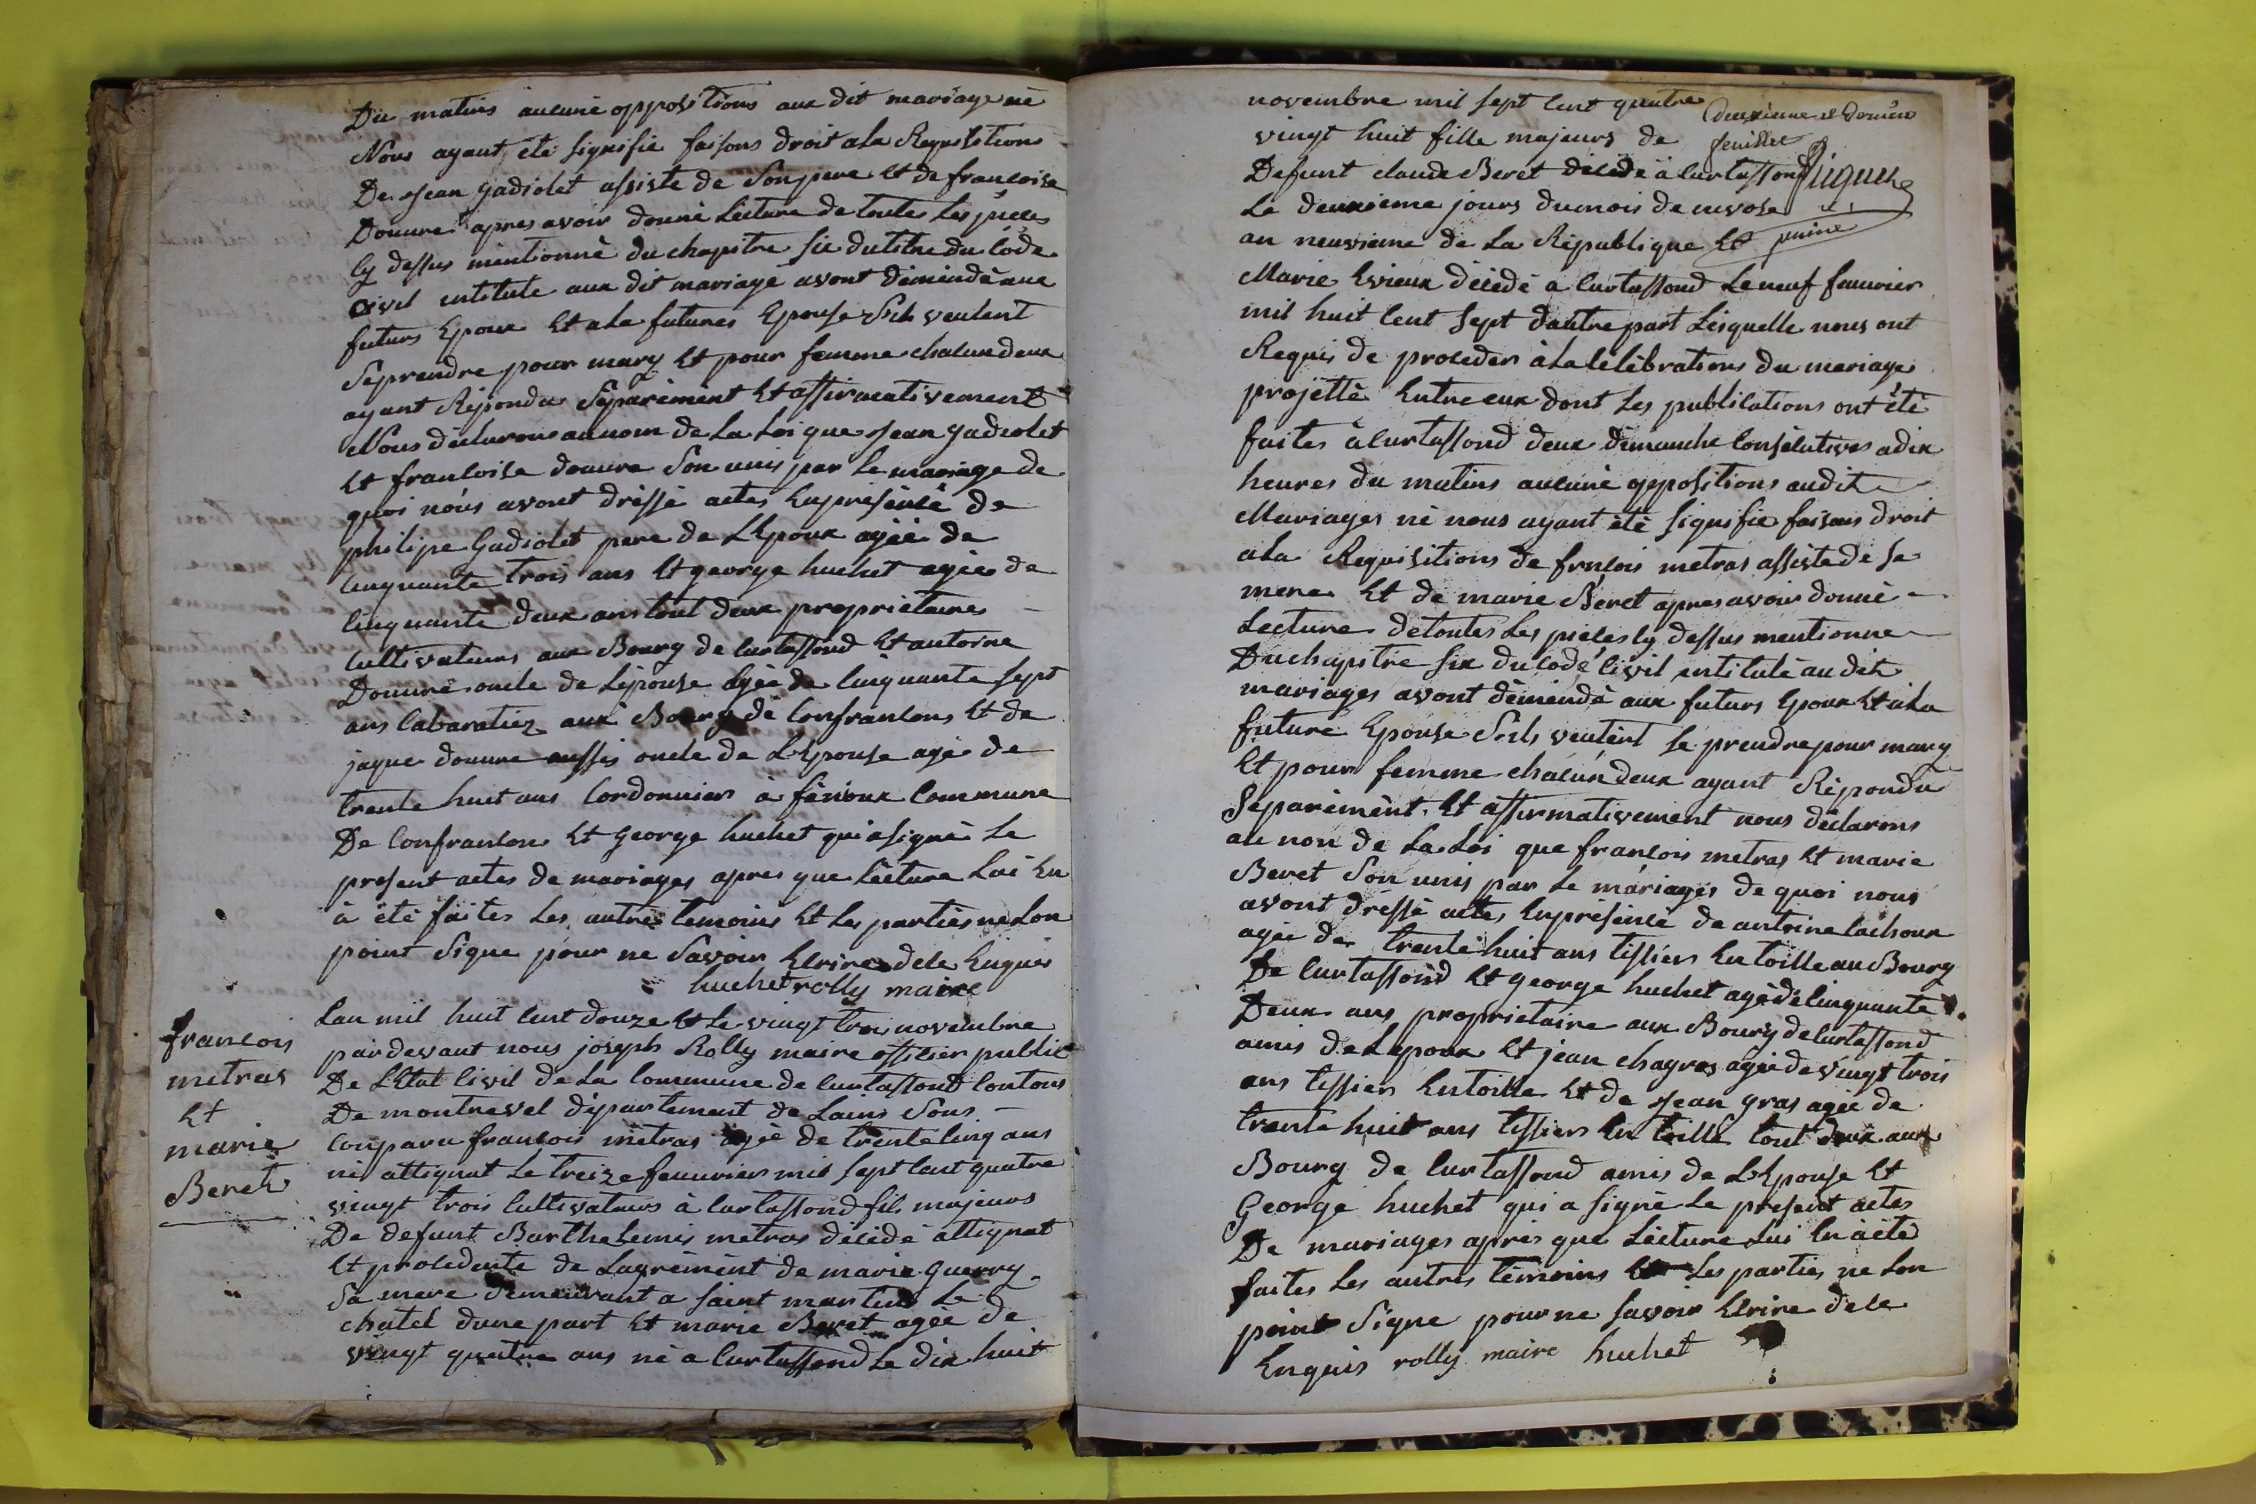 Du matins aucunè oppositions aux dit mariage nè
Nous ayant, ètè signifiè faisons droit a la Requisitions
De Jean gadiolet assiste de Son pere Et de francoise
Douvre apres avoir donnè Lecture de toutes Les pieces
Cy dessus mèntionnè du chapitre Sie du titre du Code
Civil intitulé aux dit mariagè avont dèmendè aux
futurs Epoux Et a la futures Epouse Sils veulent
Seprendre pour mary Et pour femme chacun deux
ayant Rèpondu Sèparèmènt Et affirmativement
Nous dèclarons au nom de La Loi que Jean gadiolet
Et francoise douvre Son unis par Le mariage de
quoi nous avont drèssè actes Enprèsèncè de
philipe Gadiolet pere de LEpoux agèè de
Cinquante trois ans Et george huchet agèe de
Cinquante deux ans tout deux propriètaires
Cultivateurs aux Bourg de Curtassond Et antoine
Douvre oncle de Lèpouse agèe de Cinquante sept
ans Cabaratiez aux Bourg dè Confrancons Et de
jaque douvre aussis oncle de LEpouse agè de
trente huit ans Cordonniers à fèrioux Commune
De Confrancons Et George huchet qui a signè Le
present actes de mariages apres que Lècture Lui En
à ètè faites Les autrès temoins Et Les partiès ne Lon
point Signe pour ne Savoir Ecrire dele Enquis
huchet rolly maire
francois
metras
Et
marie
Beret
Lan mil huit Cent douze Et Le vingt trois novembre
pardevant nous joseph Rolly maire officier public
De LEtat Civil de La Commune de Curtassond Contons
De montrevel dèpartement de Lains Sous
Conparu francois mètras agèè de trènte Cinq ans
nè attignat Le treize feuvrier mil sept Cent quatre
vingt trois Cultivateurs à Curtassond fils majeurs
De defunt BartheLemis metras dècèdè attignat
Et procedente de Lagrèmènt de marie guerry
Sa mere dèmeurant a saint martin Le
chatel dune part Et marie Beret agèe de
vingt quatre ans nè a Curtassond Le dix huit
novembre mil sept Cent quatre
vingt huit fille majeurs de
Defunt claude Beret dècèdè à Curtassond
Le deuxieme jours du mois de nivose
an neuvieme de La Rèpublique Et
deuxieme et dernier
feuillet
Marie Evieux dècèdè a Curtassond Le neuf feuvrier
mil huit Cent Sept dautre part Lesquelle nous ont
Requis de proceder à La Cèlèbrations du mariage
projettè Entre eux dont Les publications ont ètè
faites à Curtassond deux dimanche Consècutives a dix
heures du matins aucunè oppositions audit
Mariages nè nous ayant ètè signifie faisons droit
a la Requisitions de frnçois metras assiste de sa
mere Et de marie Bèret apres avoir donnè
Lecture detoutes Les pièces Cy dessus mentionne
Duchapitre six du codè Civil intitulè audit
mariages avont dèmèndè aux futurs Epoux Et à La
future Epouse Sils veulènt Se prendre pour mary
Et pour femme chacun deux ayant Rèpondu
Separèmènt Et affirmativement nous dèclarons
au non de La Loi que francois metras Et marie
Beret Son unis par Le mariages de quoi nous
avont drèssè actes Enprèsèncè de antoine Cachoux
agee de trente huit ans tissiers En toille au Bourg
De Curtassond Et george huchet agè de Cinquante
Deux ans proprietaire aux Bourg de Curtassond
amis de Lepoux Et jean chagros agèè de vingt trois
ans tissiers En toille Et de Jean gras agèe de
trente huit ans tissiers En toille tout deux aux
Bourg de Curtassond amis de LEpouse Et
George huchet qui a signè Le present actes
De mariages apres que Lècture Lui En à ètè
faites Les autres tèmoins Et Les parties ne Lon
point Signe pour ne savoir Ecrire dele
Enquis rolly maire huchet